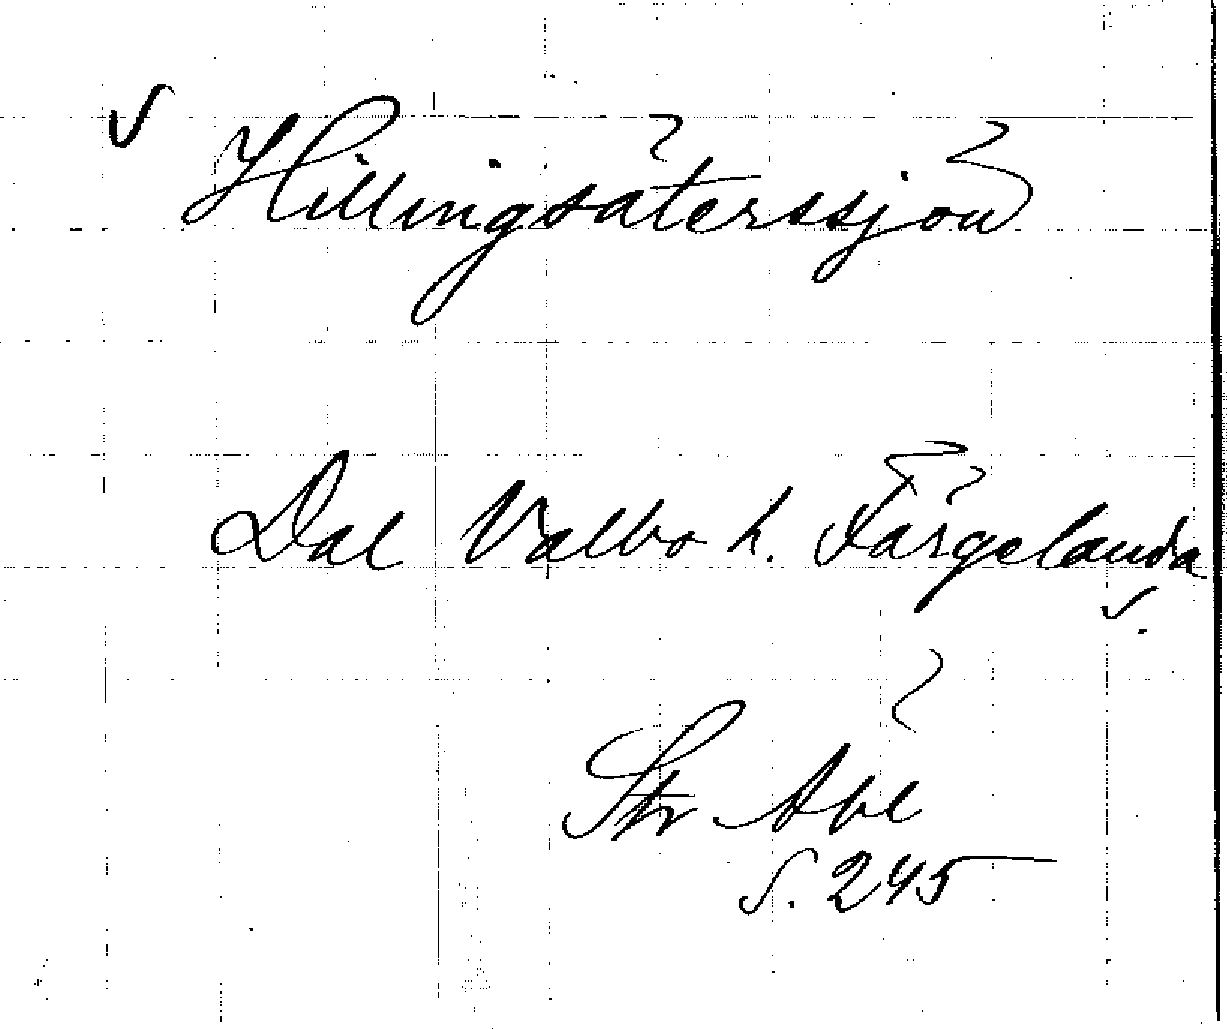 √ Hillingsätersjön
Dal Valbo h. Färgelanda
s.
Str Åbl
s. 245